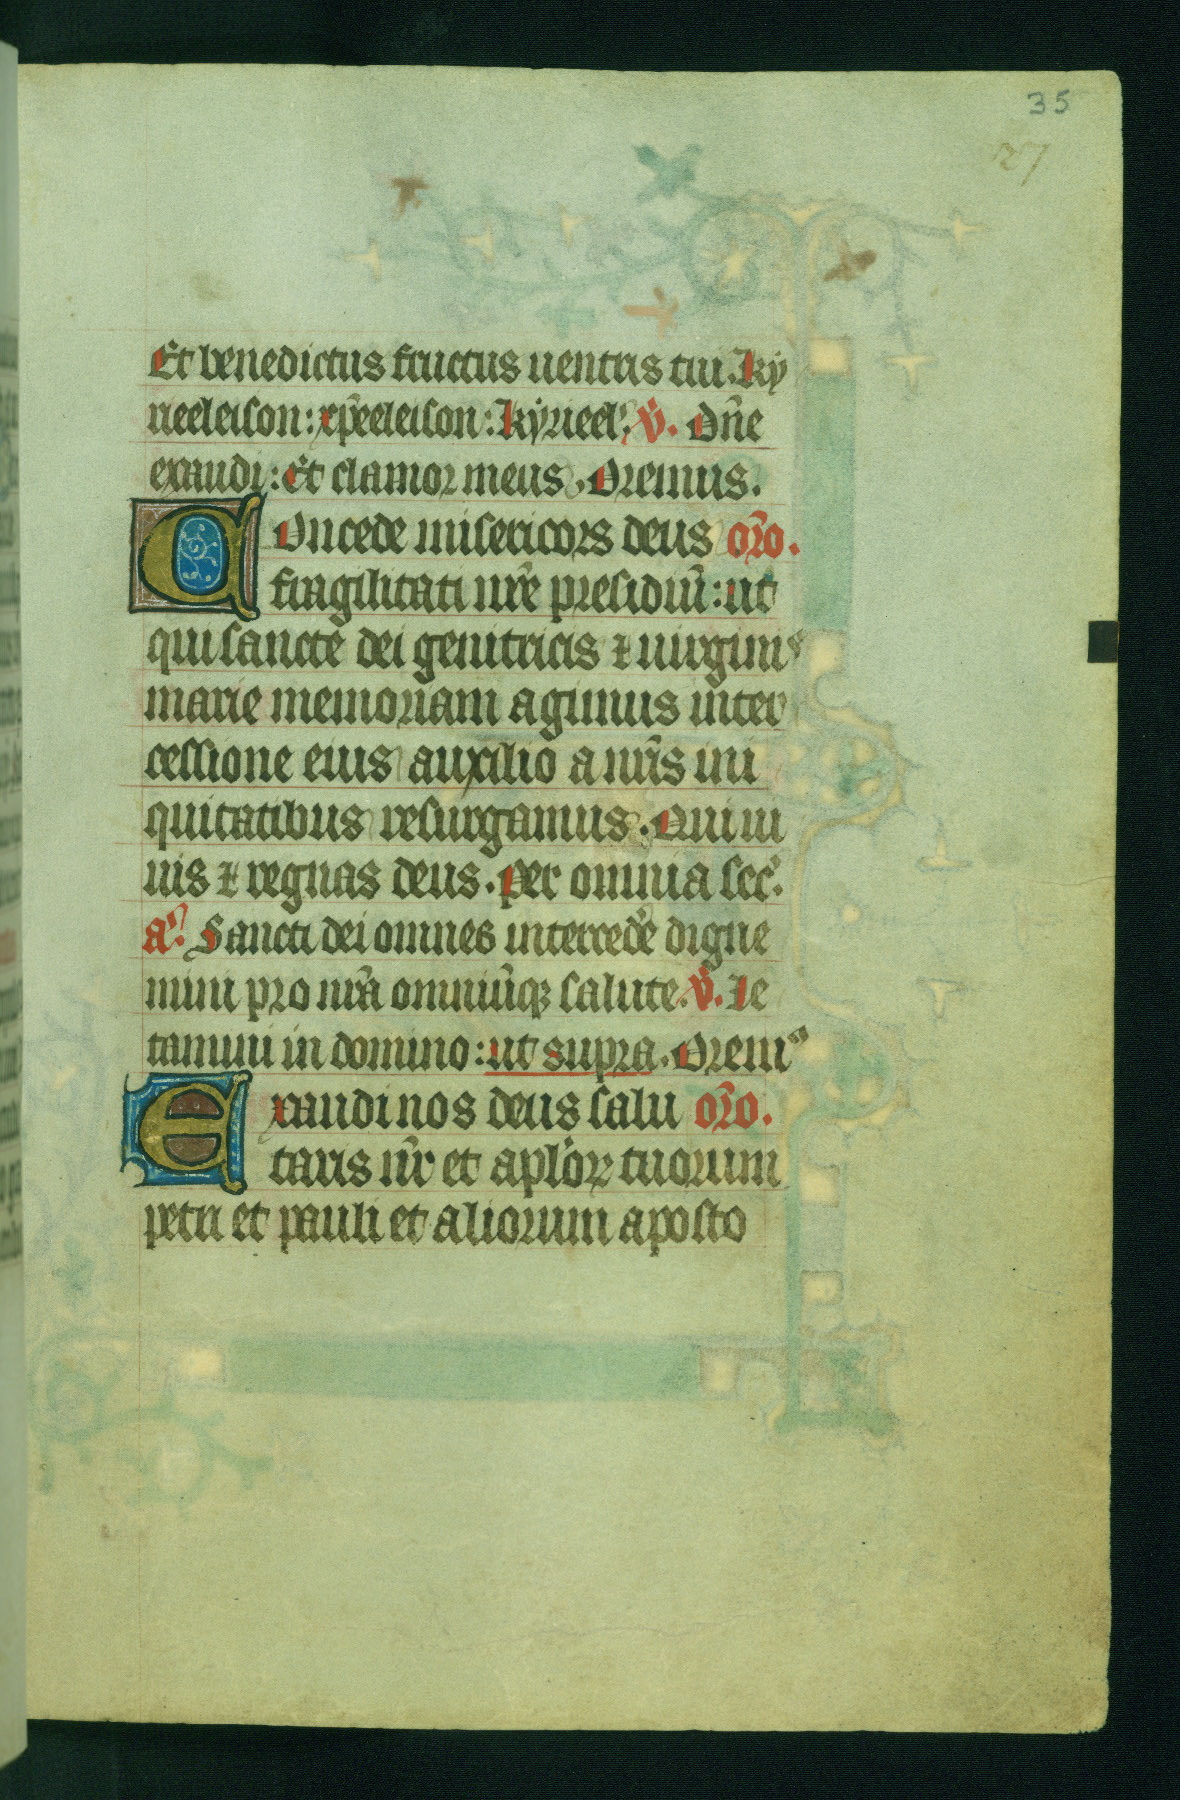 35
27
Et benedictus fructus uentris tui. Ky
rieeleison: xp̄eeleison: Kyrieel'. V̄. Dn̄e
exaudi: Et clamor meus. Oremus.
Concede misericors deus or̄o.
fragilitati nr̄e presidiū: ut
qui sancte dei genitricis ⁊ uirginis
marie memoriam agimus inter
cessione eius auxilio a nr̄is ini
quitatibus resurgamus. Qui ui
uis ⁊ regnas deus. Per omnia sec̄.
a᷑. Sancti dei omnes intercedē digne
mini pro nr̄a omniūqꝫ salute. V̄. Le
tamini in domino: ut supra. Orem⁹
Exaudi nos deus salu or̄o.
taris nr̄ et apl'oꝝ tuorum
petri et pauli et aliorum aposto